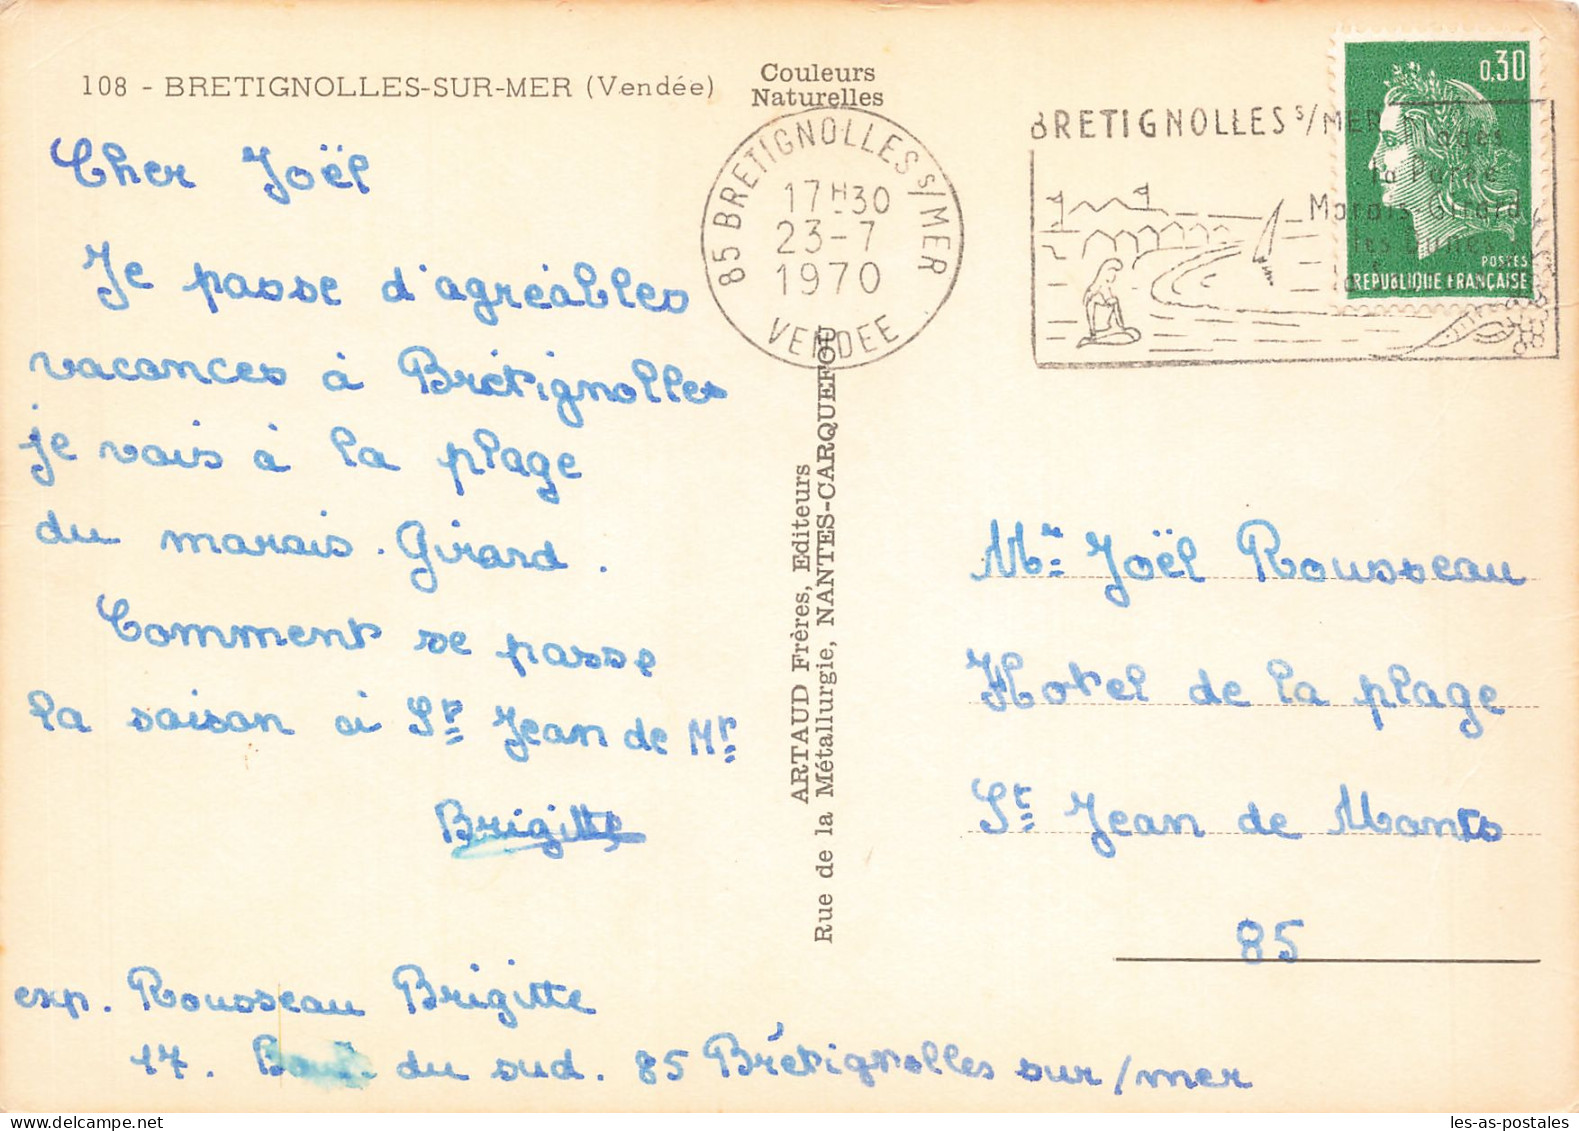 108 - BRETIGNOLLES-SUR-MER (Vendée)
Couleurs
Naturelles
Cher Joël
Je passe d'agréables
vacances à Brétignolles
je vais à la plage
du marais. Girard.
Comment se passe
la saison à St Jean de Mt
Brigitte
exp. Rousseau Brigitte
17. du sud. 85 Brétignolles sur/mer
ARTAUD Frères, Editeurs
Rue de la Métallurgie, NANTES-CARQUEFOU
85 BRETIGNOLLES S/MER
17H30
23-7
1970
VENDEE
BRETIGNOLLES S/MER
Plages
la Parée
Marais-Girard
les Dunes
0,30
POSTES
REPUBLIQUE FRANÇAISE
Mr Joël Rousseau
Hotel de la plage
St Jean de Monts
85
les-as-postales